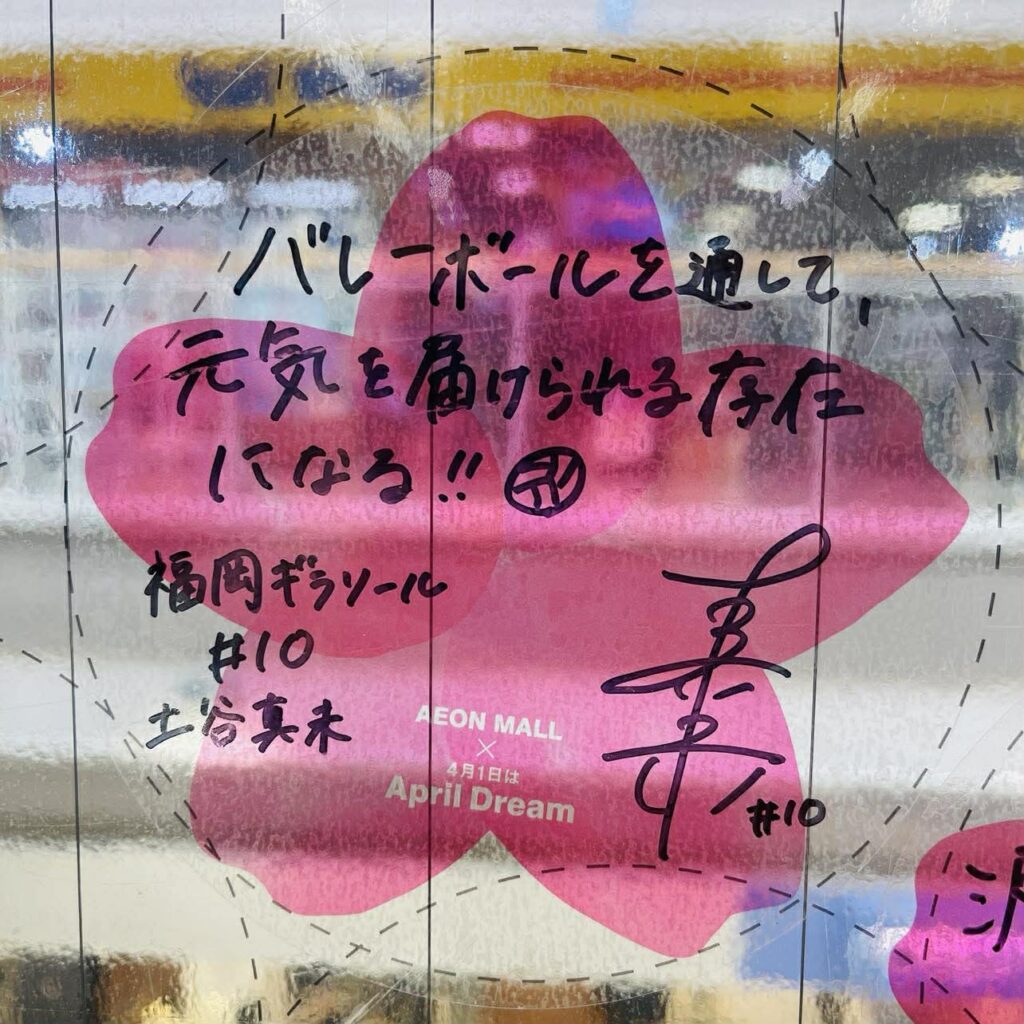 バレーボールを通して、
元気を届けられる存在
になる!!
福岡ギラソール
#10
土谷真未
AEON MALL
×
4月1日は
April Dream
#10